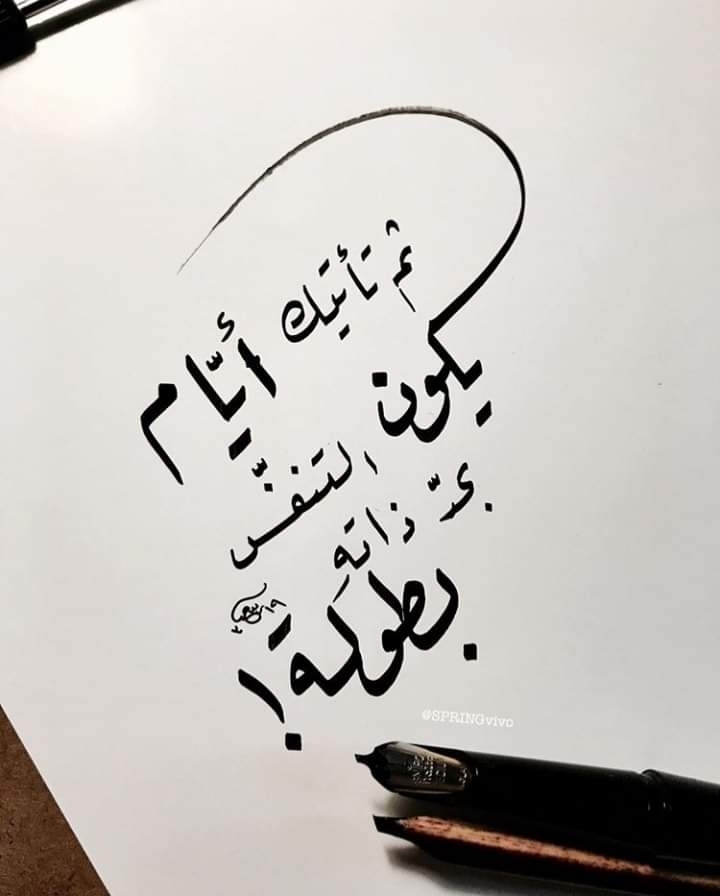 ثم تأتيك أيّام
يكون التنفّس
بحدّ ذاتهِ
بطولة!
@SPRINGvivo